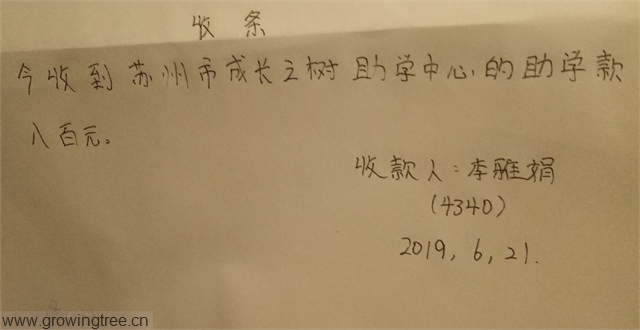 收条
今收到苏州市成长之树助学中心的助学款
八百元。
收款人：李雅娟
(4340)
2019，6，21.
www.growingtree.cn